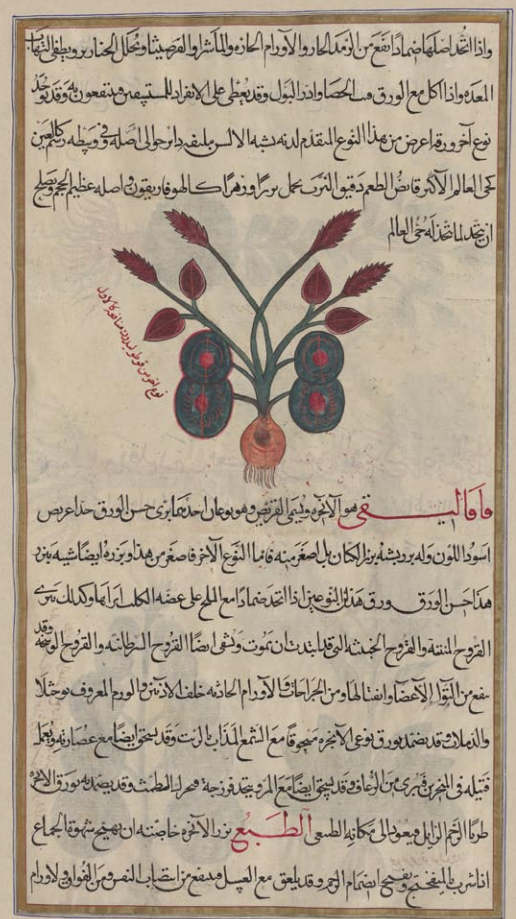 واذا اتخذ اصلها ضمادا نفع من الرمد الحار والاورام الحارة والماشرا و وتحلل الخنازير ويطفى التهاب
المعده واذا اكل مع الورق فت الحصا وادر البول وقد يعطى على الانفراد للمستسقين فينتفعون به وقد يوجد
نوع آخر ورقه اعرض من هذا النوع المقدم لدنه شبه الالسن ملتف دابر حوالى اصله وفى وسطه رسم كالعين
كحى العالم الاكبر قابض الطعم دقيق يحمل بزرا وزهرا كالهوفاريقون واصله عظيم الحجم ويصلح
ان يتخذ لما يتخذ له حى العالم
نوع اخر من
واقاليـفى هو الانجره ويسمى القريص وهو نوعان احدهما برى خشن الورق جدا عريض
اسود اللون وله بزر يشبه بزر الكتان بل اصغر منه فاما النوع الآخر فاصغر من هذا وبزره ايضا شبيه ببزر
هذا خشن الورق ورق هذين النوعين اذا اتخذ ضمادا مع الملح على عضه الكلب ابراها وكذلك تبرى
القروح المنتنة والقروح الخبيثه التى قد ابتدت ان تموت وتشفى ايضا القروح السرطانيه والقروح الوسخه وقد
ينفع من التوا الاعضا وانفتالها ومن الجراحات والاورام الحادثه خلف الاذنين والورم المعروف بوجثلا
والدملات قد يضمد بورق نوعى الانجره مسحوقا مع الشمع المذاب بالزيت وقد يسحق ايضا مع عصارته ويعمل
فتيله فى المنخرين فتبرى من الرعاف وقد يسحق ايضا مع المر ويتخذ فرزجة فيحرك الطمث وقد يضمد به بورق الانجره
طريا الرحم الزايل فيعود الى مكانه الطبعى الطبع بزر الانجره خاصته ان يهيج شهوة الجماع
اذا شرب بالميفختج ويفتح انضمام الرحم وقد يلعق مع العسل فينفع من انتصاب النفس ومن الفواق والاورام